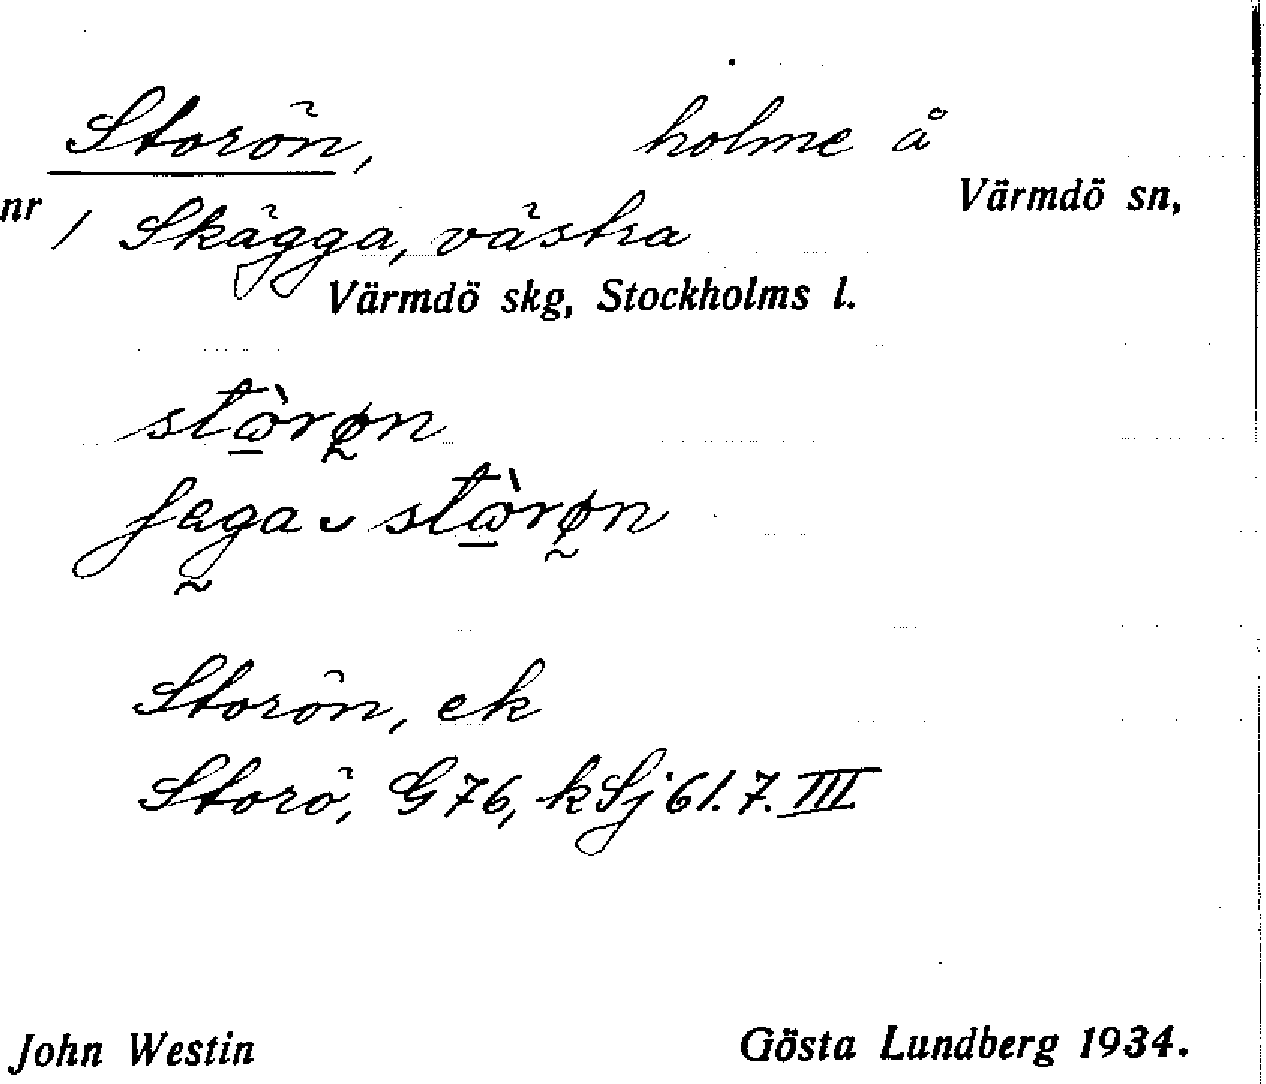 Storön, holme å
nr 1 Skägga, västra Värmdö sn,
Värmdö skg, Stockholms l.
stὼ̲rø̰n
ʃæga ᴗ stὼ̲rø̰n
Storön, ek
Storö, G 76, k Sj 61. 7. III
John Westin Gösta Lundberg 1934.